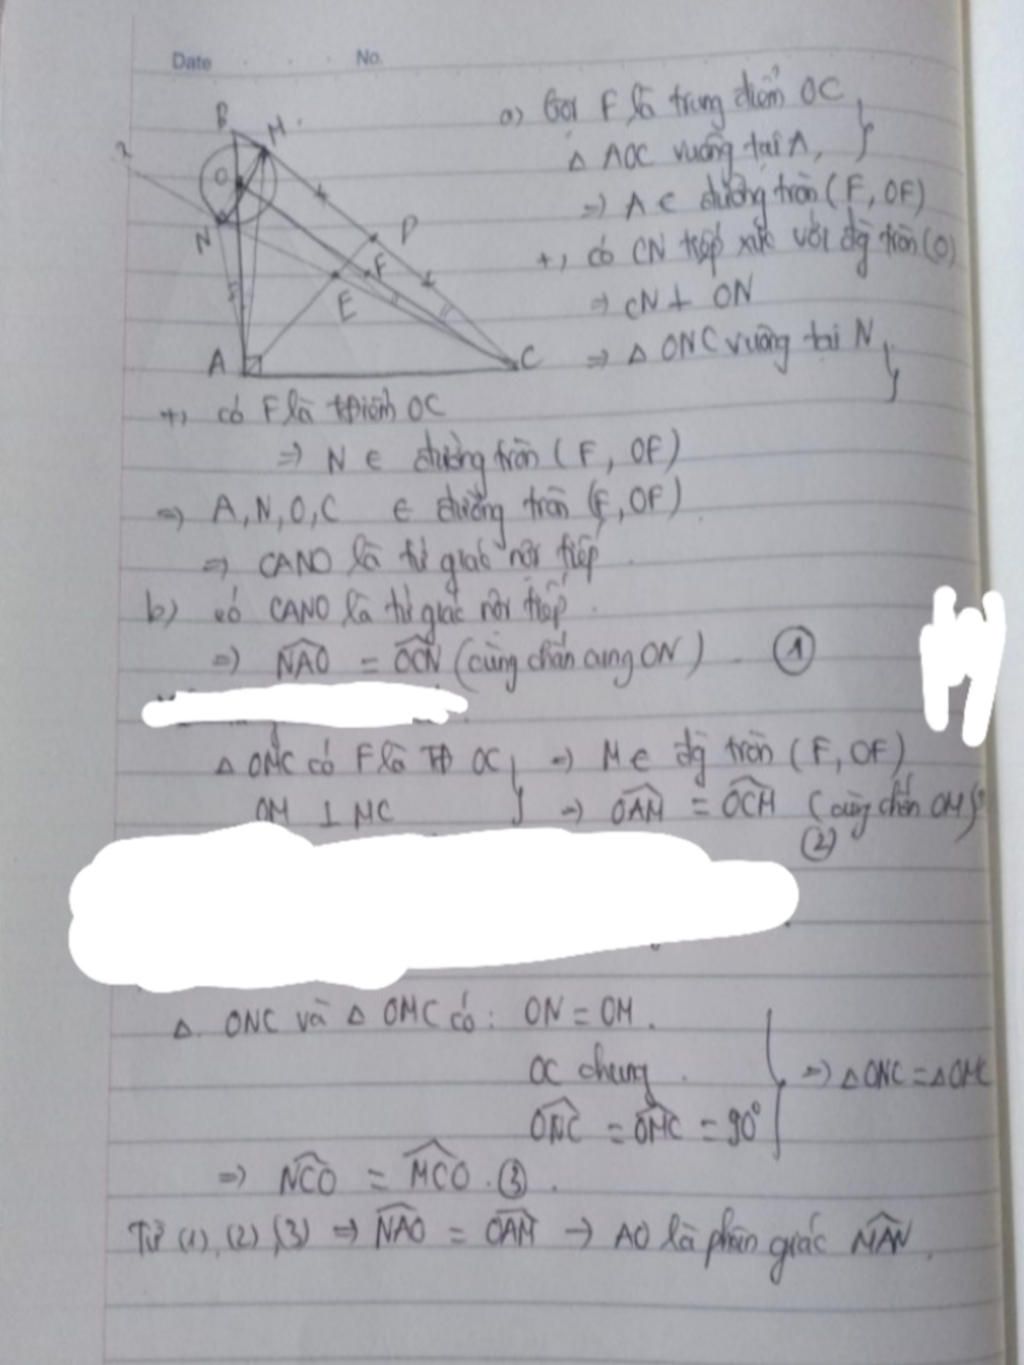 Date No.
B
M
O
N
P
F
E
A
C
a) Gọi F là trung điểm OC
Δ AOC vuông tại A,
=> A ∈ đường tròn (F, OF)
+, có CN tiếp xúc với đg tròn (O)
=> CN ⊥ ON
=> Δ ONC vuông tại N
+, có F là tđiểm OC
=> N ∈ đường tròn (F, OF)
=> A, N, O, C ∈ đường tròn (F, OF)
=> CANO là tứ giác nội tiếp.
b) có CANO là tứ giác nội tiếp.
=> NAO = OCN (cùng chắn cung ON) ①
Δ OMC có F là TĐ OC } => M ∈ đg tròn (F, OF)
OM ⊥ MC => OAM = OCM (cùng chắn OM)
(2)
Δ. ONC và Δ OMC có: ON = OM.
OC chung.
=> Δ ONC = Δ OMC
ONC = OMC = 90°
=> NCO = MCO. ③.
Từ (1), (2), (3) => NAO = OAM → AO là phân giác MAN.